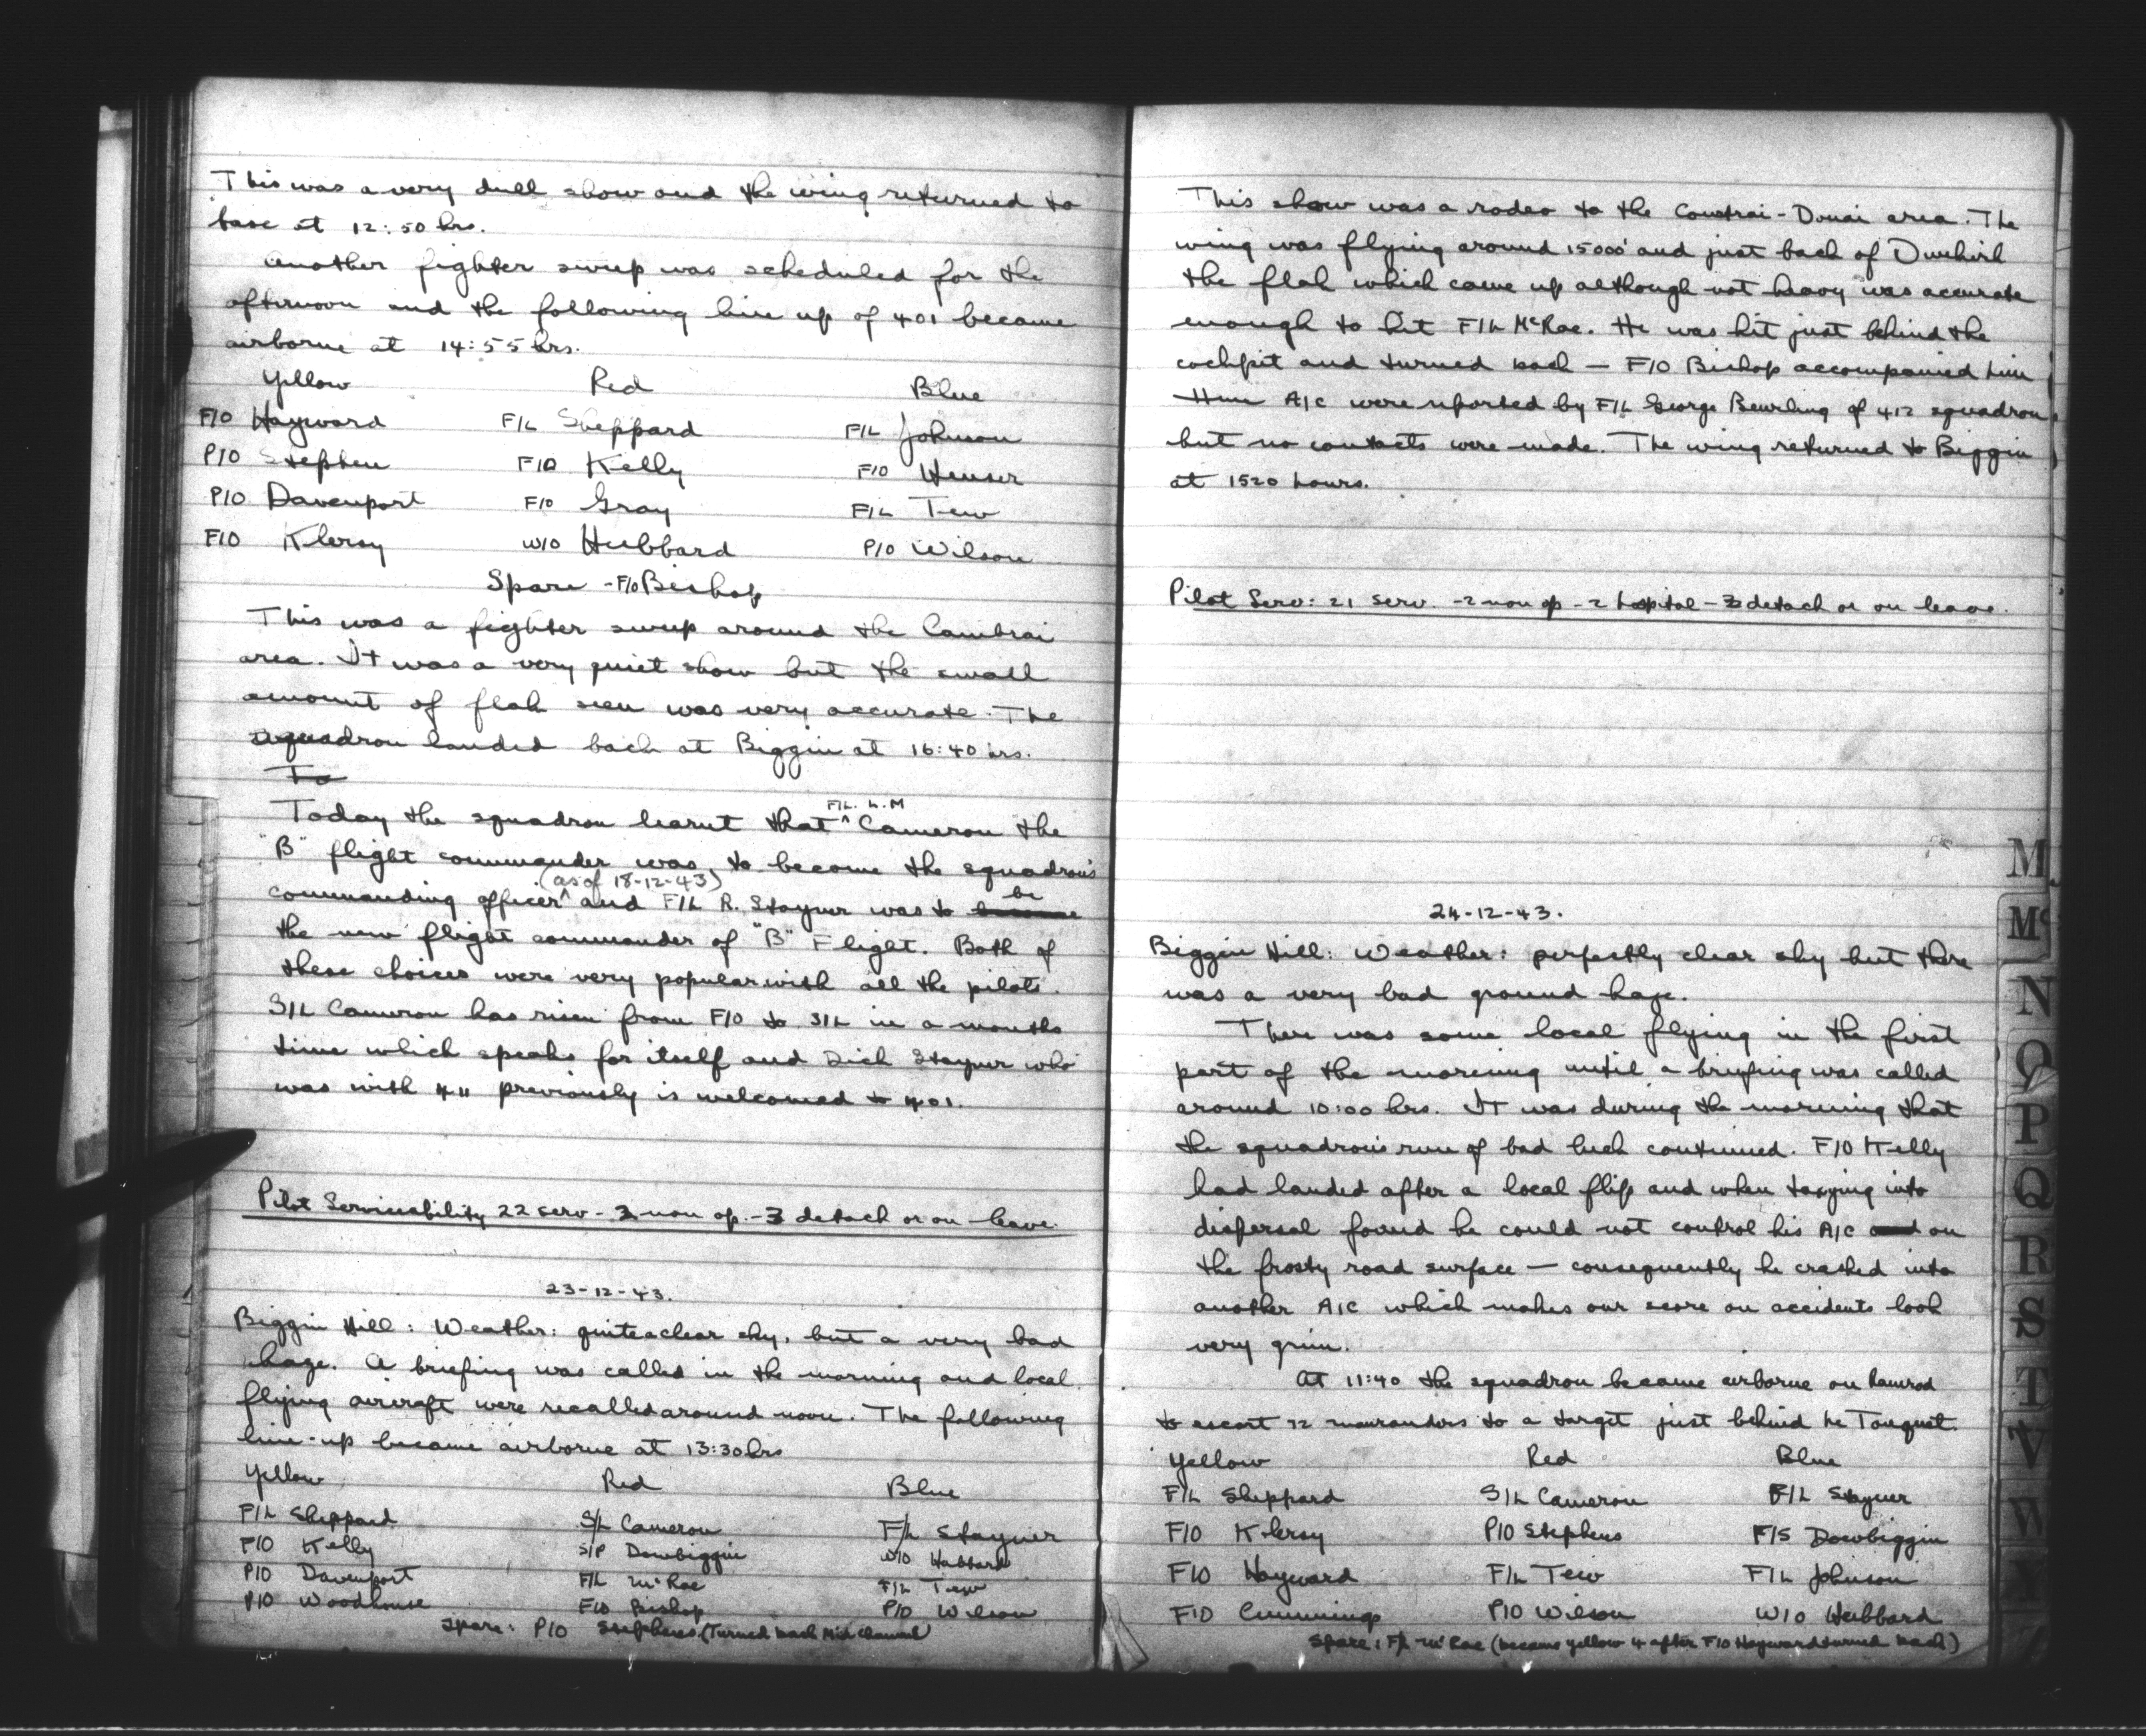 This was a very dull show and the wing returned to
base at 12:50 hrs.
Another fighter sweep was scheduled for the
afternoon and the following line up of 401 became
airborne at 14:55 hrs.
Yellow Red Blue
F/O Hayward F/L Sheppard F/L Johnson
P/O Stephen F/O Kelly F/O Heuser
P/O Davenport F/O Gray F/L Tew
F/O Klersy W/O Hubbard P/O Wilson
Spare - F/O Bishop
This was a fighter sweep around the Cambrai
area. It was a very quiet show but the small
amount of flak seen was very accurate. The
squadron landed back at Biggin at 16:40 hrs.
To
Today the squadron learnt that F/L. L.M Cameron the
"B" flight commander was to become the squadron's
commanding officer (as of 18-12-43) and F/L R. Stayner was to become be
the new flight commander of "B" Flight. Both of
these choices were very popular with all the pilots.
S/L Cameron has risen from F/O to S/L in a months
time which speaks for itself and Dick Stayner who
was with 411 previously is welcomed to 401.
Pilot Serviceability 22 serv - 2 non op. - 3 detach or on leave.
23-12-43.
Biggin Hill: Weather: quite a clear sky, but a very bad
haze. A briefing was called in the morning and local
flying aircraft were recalled around noon. The following
line-up became airborne at 13:30 hrs
Yellow Red Blue
F/L Sheppard S/L Cameron F/L Stayner
F/O Kelly Dowbiggin W/O Hubbard
P/O Davenport F/L McRae F/L Tew
P/O Woodhouse F/O Bishop P/O Wilson
Spare: P/O Stephens (Turned back Mid channel)
This show was a rodeo to the Courtrai-Douai area. The
wing was flying around 15000' and just back of Dunkirk
the flak which came up although not heavy was accurate
enough to hit F/L McRae. He was hit just behind the
cockpit and turned back — F/O Bishop accompanied him
Hun A/C were reported by F/L George Beurling of 412 squadron
but no contacts were made. The wing returned to Biggin
at 1520 hours.
Pilot Serv: 21 serv. - 2 non op - 2 hospital - 3 detach or on leave.
24-12-43.
Biggin Hill: Weather: perfectly clear sky but there
was a very bad ground haze.
There was some local flying in the first
part of the morning until a briefing was called
around 10:00 hrs. It was during the morning that
the squadron's run of bad luck continued. F/O Kelly
had landed after a local flip and when taxying into
dispersal found he could not control his A/C and on
the frosty road surface — consequently he crashed into
another A/C which makes our score on accidents look
very grim.
At 11:40 the squadron became airborne on ramrod
to escort 72 marauders to a target just behind Le Touquet.
Yellow Red Blue
F/L Sheppard S/L Cameron F/L Stayner
F/O Klersy P/O Stephens F/S Dowbiggin
F/O Hayward F/L Tew F/L Johnson
F/O Cummings P/O Wilson W/O Hubbard
Spare: F/L McRae (became yellow 4 after F/O Hayward turned back)
M
Mc
N
O
P
Q
R
S
T
V
W
Y
Z